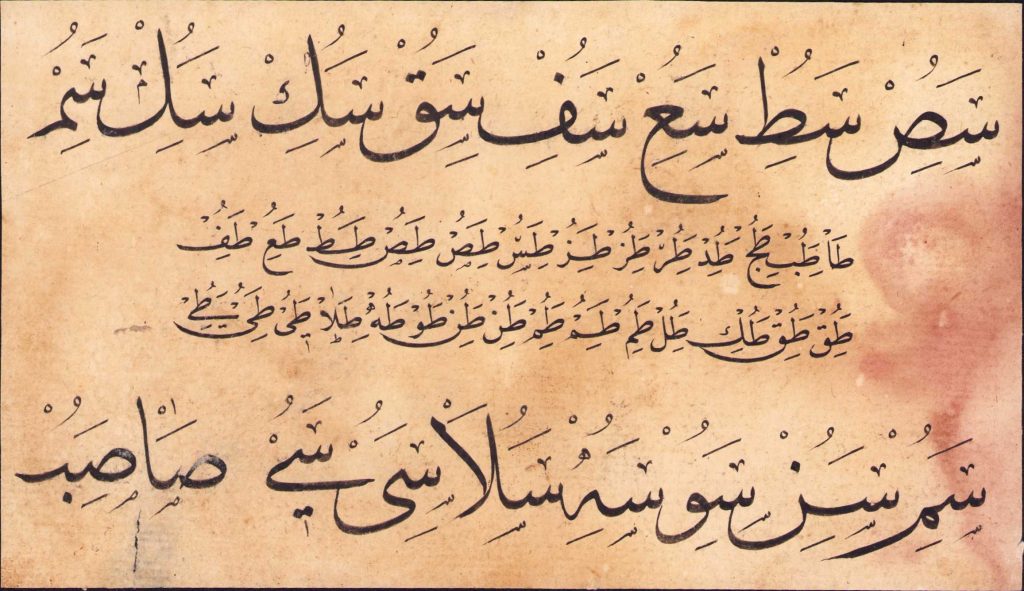 سص سط سع سف سق سك سل سم
طا طب طج طد طر طر طر طس طص طص طط طع طف
طق طق طك طل طم طم طم طن طن طو طه طلا طى طى طے
سم سن سو سه سلا سى سے صا صب